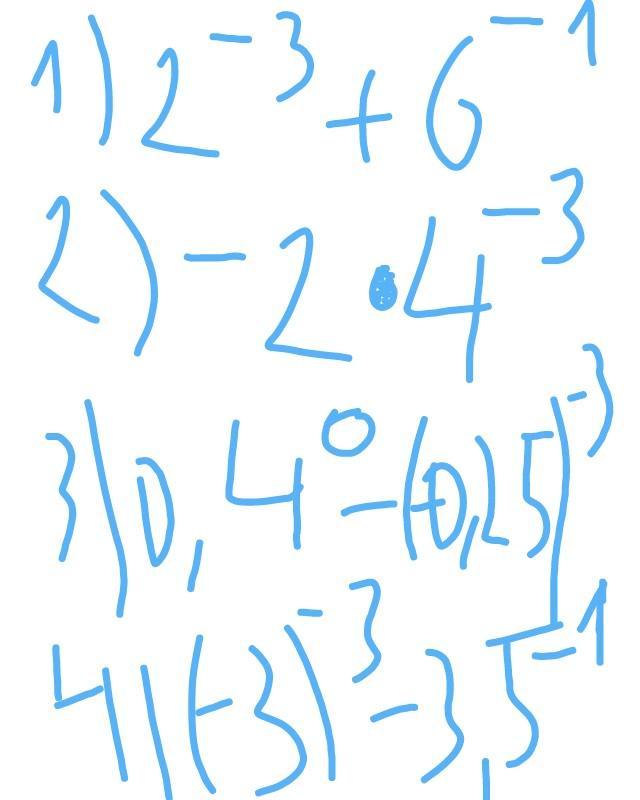 1) 2⁻³ + 6⁻¹
2) -2 • 4⁻³
3) 0,4⁰ - (-0,25)⁻³
4) (-3)⁻³ - 3,5⁻¹